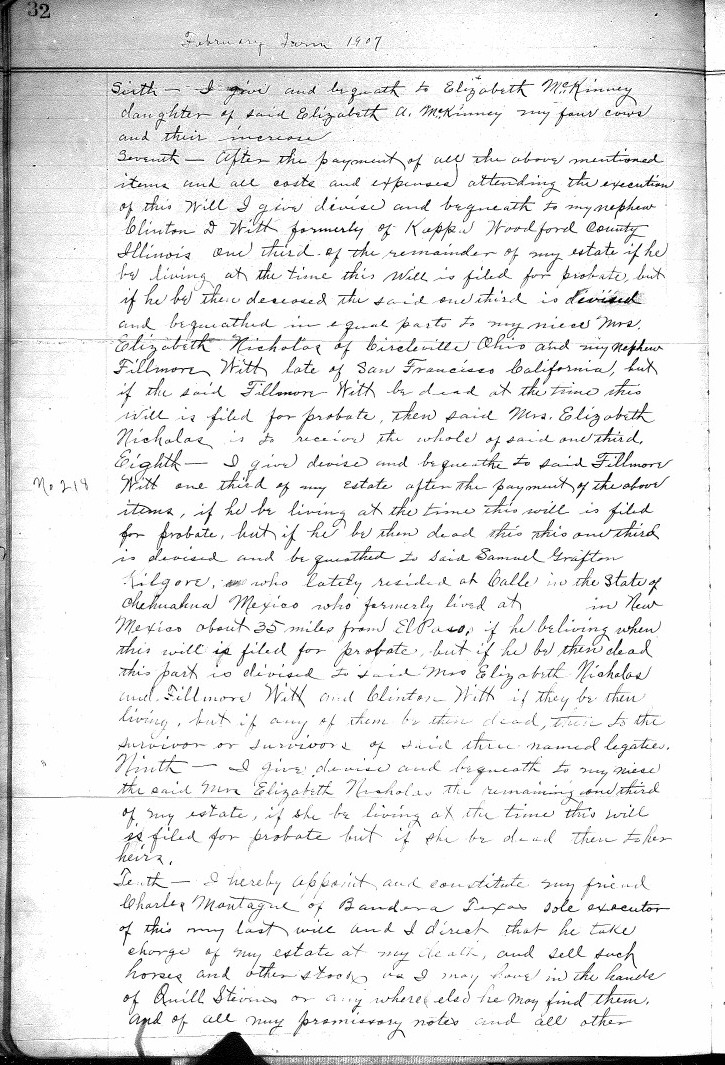 32
February Term 1907
Sixth — I give and bequath to Elizabeth McKinney
daughter of said Elizabeth A. McKinney my four cows
and their increase
Seventh — After the payment of all the above mentioned
items and all costs and expenses attending the execution
of this Will I give devise and bequeath to my nephew
Clinton D Witt formerly of Kappa Woodford County
Illinois one third of the remainder of my estate if he
be living at the time this Will is filed for probate, but
if he be then deceased the said one third is devised
and bequeathed in equal parts to my niece Mrs.
Elizabeth Nicholas of Circleville Ohio and my nephew
Fillmore Witt late of San Francisco California, but
if the said Fillmore Witt be dead at the time this
Will is filed for probate, then said Mrs. Elizabeth
Nicholas is to receive the whole of said one third.
Eighth — I give devise and bequeathe to said Fillmore
No 218
Witt one third of my Estate after the payment of the above
items, if he be living at the time this will is filed
for probate, but if he be then dead this this one third
is devised and bequeathed to said Samuel Grafton
Kilgore, who lately resided at Calle in the State of
Chehuahua Mexico who formerly lived at in New
Mexico about 35 miles from El Paso, if he be living when
this will is filed for probate, but if he be then dead
this part is divised to said Mrs Elizabeth Nicholas
and Fillmore Witt and Clinton Witt if they be then
living, but if any of them be then dead, then to the
survivor or survivors of said three named legaties.
Ninth — I give devise and bequeath to my niese
the said Mrs Elizabeth Nicholas the remaining one third
of my estate, if she be living at the time this will
is filed for probate but if she be dead then to her
heirs.
Tenth — I hereby appoint and constitute my friend
Charles Montague of Bandera Texas sole executor
of this my last will and I direct that he take
charge of my estate at my death, and sell such
horses and other stock as I may have in the hands
of Quill Stevens or any where else he may find them.
and of all my promissory notes and all other